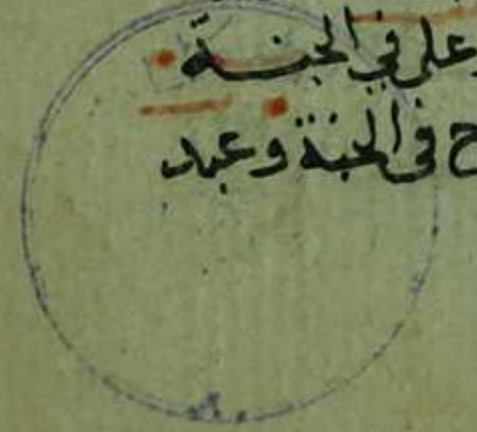 وعلي في الجنة
ح في الجنة وعبد